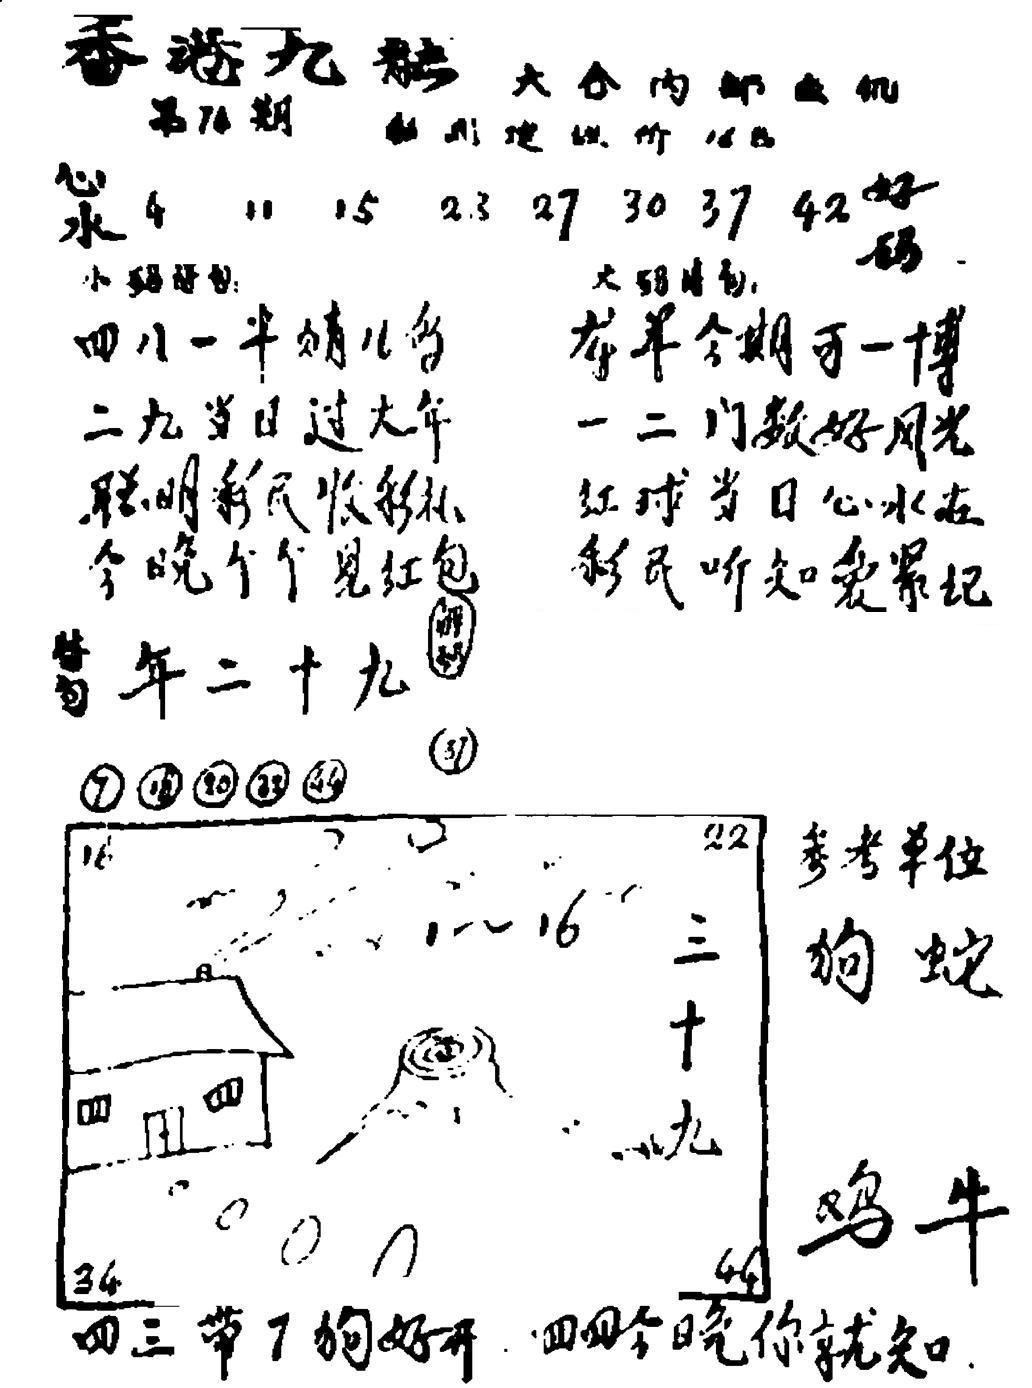 香港九龙
六合内部
第74期
心水 4 11 15 23 27 30 37 42 好码
小码诗句:
大码诗句:
四八一半 儿
二九当日过大年
聪明彩民收彩礼
今晚个个见红包
今期可一博
一二门数好风光
红球当日心水在
彩民听知爱 记
特句 年二十九
解
37
7 16 20 33 44
16 22
1~16
三十九
34 44
参考单位
狗 蛇
鸡 牛
四三带7狗好开 四四今晚你就知.